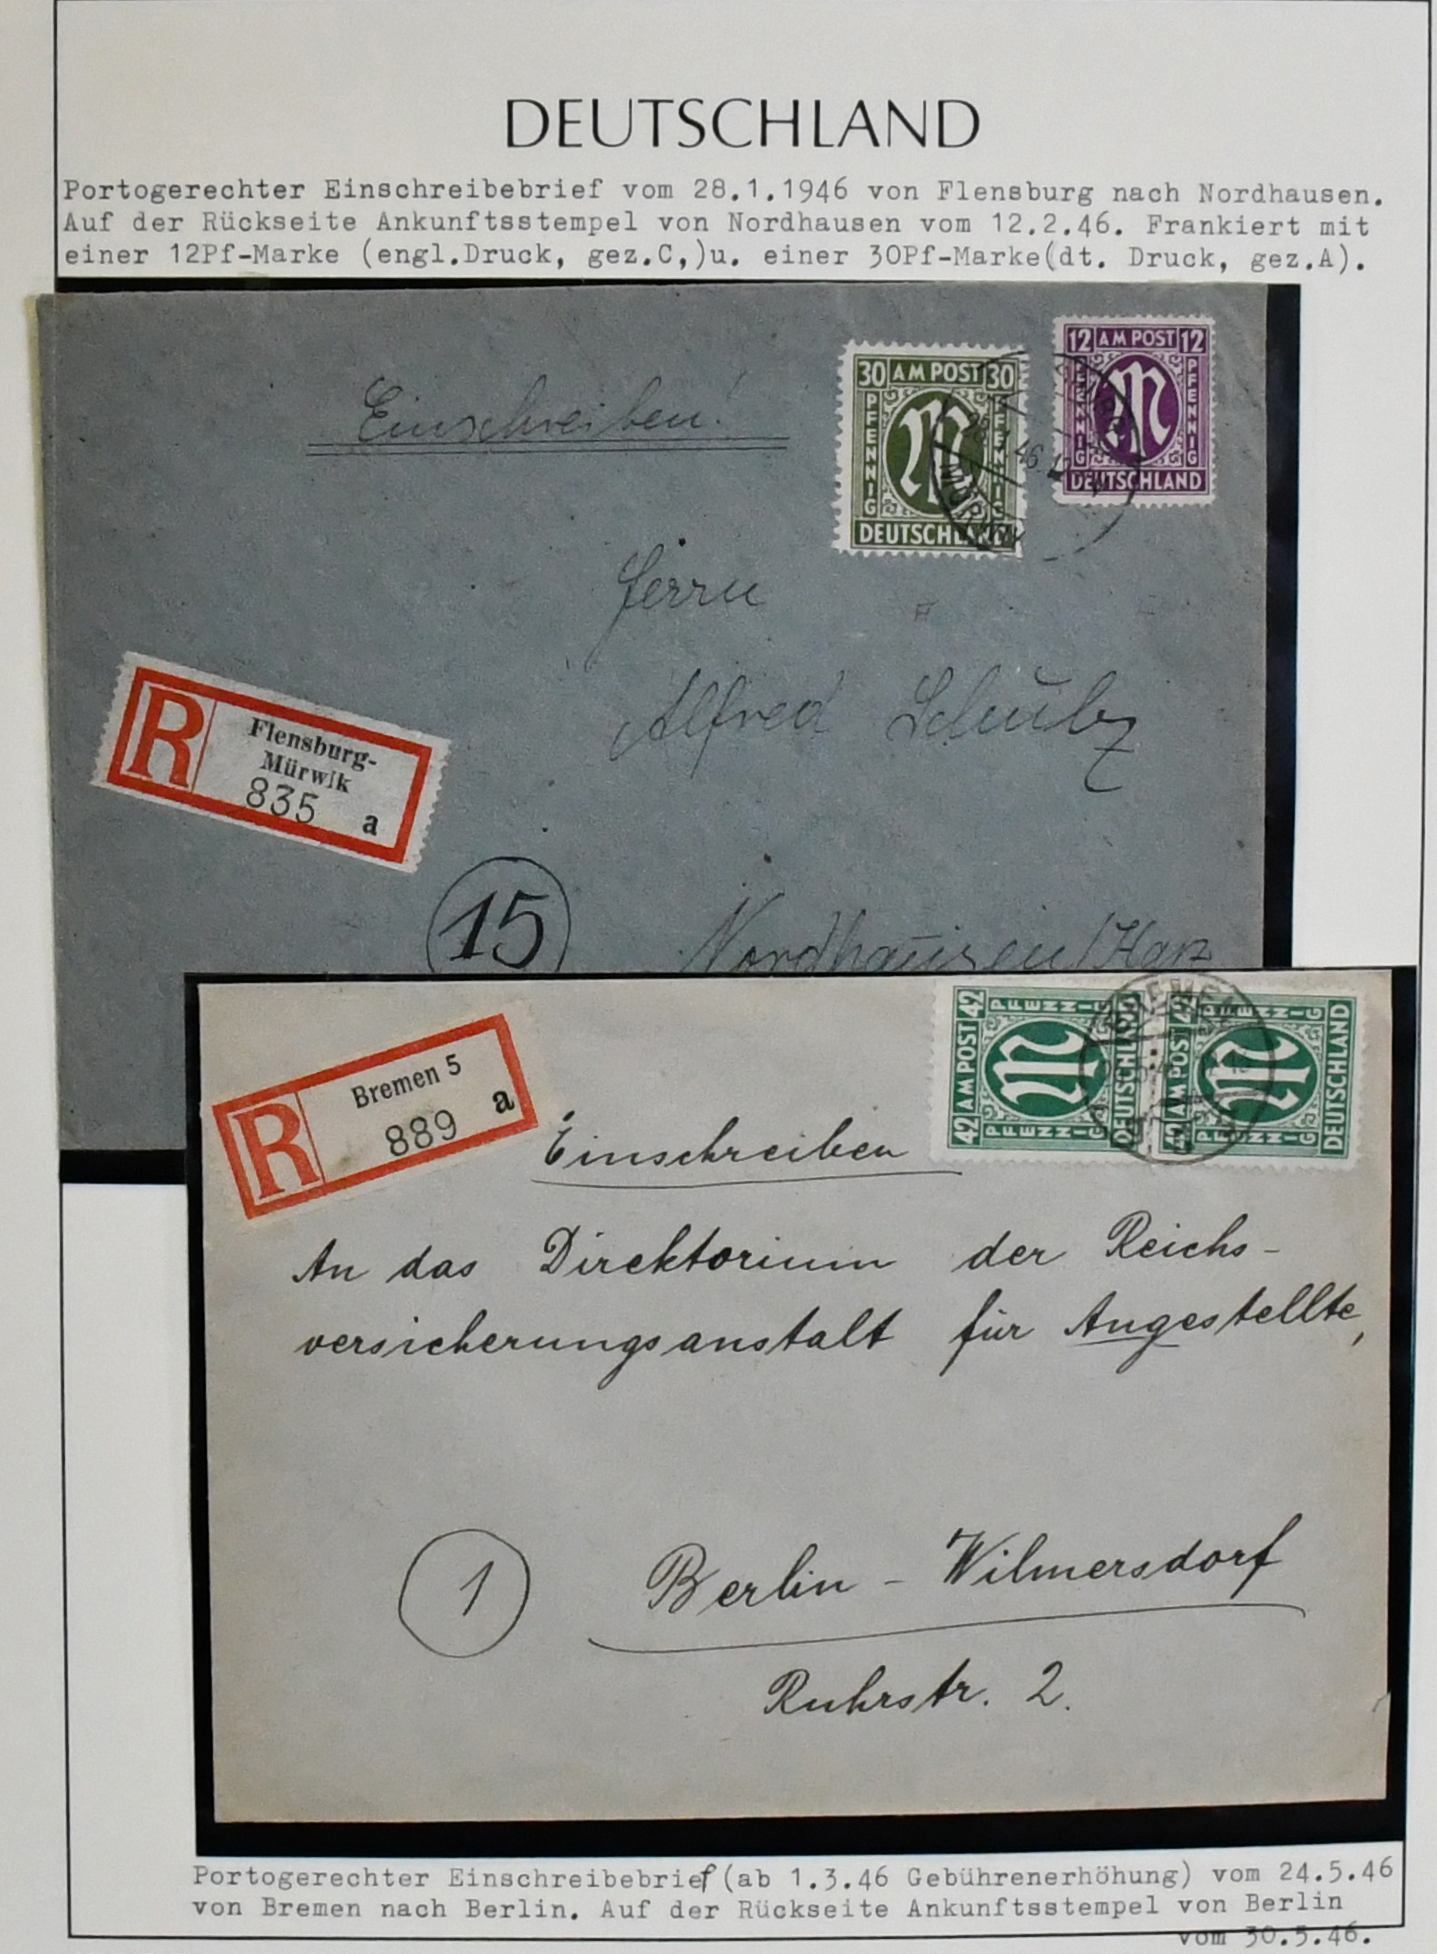 DEUTSCHLAND
Portogerechter Einschreibebrief vom 28.1.1946 von Flensburg nach Nordhausen.
Auf der Rückseite Ankunftsstempel von Nordhausen vom 12.2.46. Frankiert mit
einer 12Pf-Marke (engl.Druck, gez.C,)u. einer 30Pf-Marke(dt. Druck, gez.A).
12 AM POST 12
PFENNIG
PFENNIG
DEUTSCHLAND
30 AM POST 30
PFENNIG
PFENNIG
DEUTSCHLAND
46
MÜRWIK
Einschreiben!
Herrn
Alfred Schulz
R
Flensburg-
Mürwik
835 a
15
Nordhausen/Harz
R
Bremen 5
889 a
42 AM POST 42
PFENNIG
PFENNIG
DEUTSCHLAND
42 AM POST 42
PFENNIG
PFENNIG
DEUTSCHLAND
BREMEN
Einschreiben
An das Direktorium der Reichs-
versicherungsanstalt für Angestellte,
1
Berlin - Wilmersdorf
Ruhrstr. 2.
Portogerechter Einschreibebrief(ab 1.3.46 Gebührenerhöhung) vom 24.5.46
von Bremen nach Berlin. Auf der Rückseite Ankunftsstempel von Berlin
vom 30.5.46.